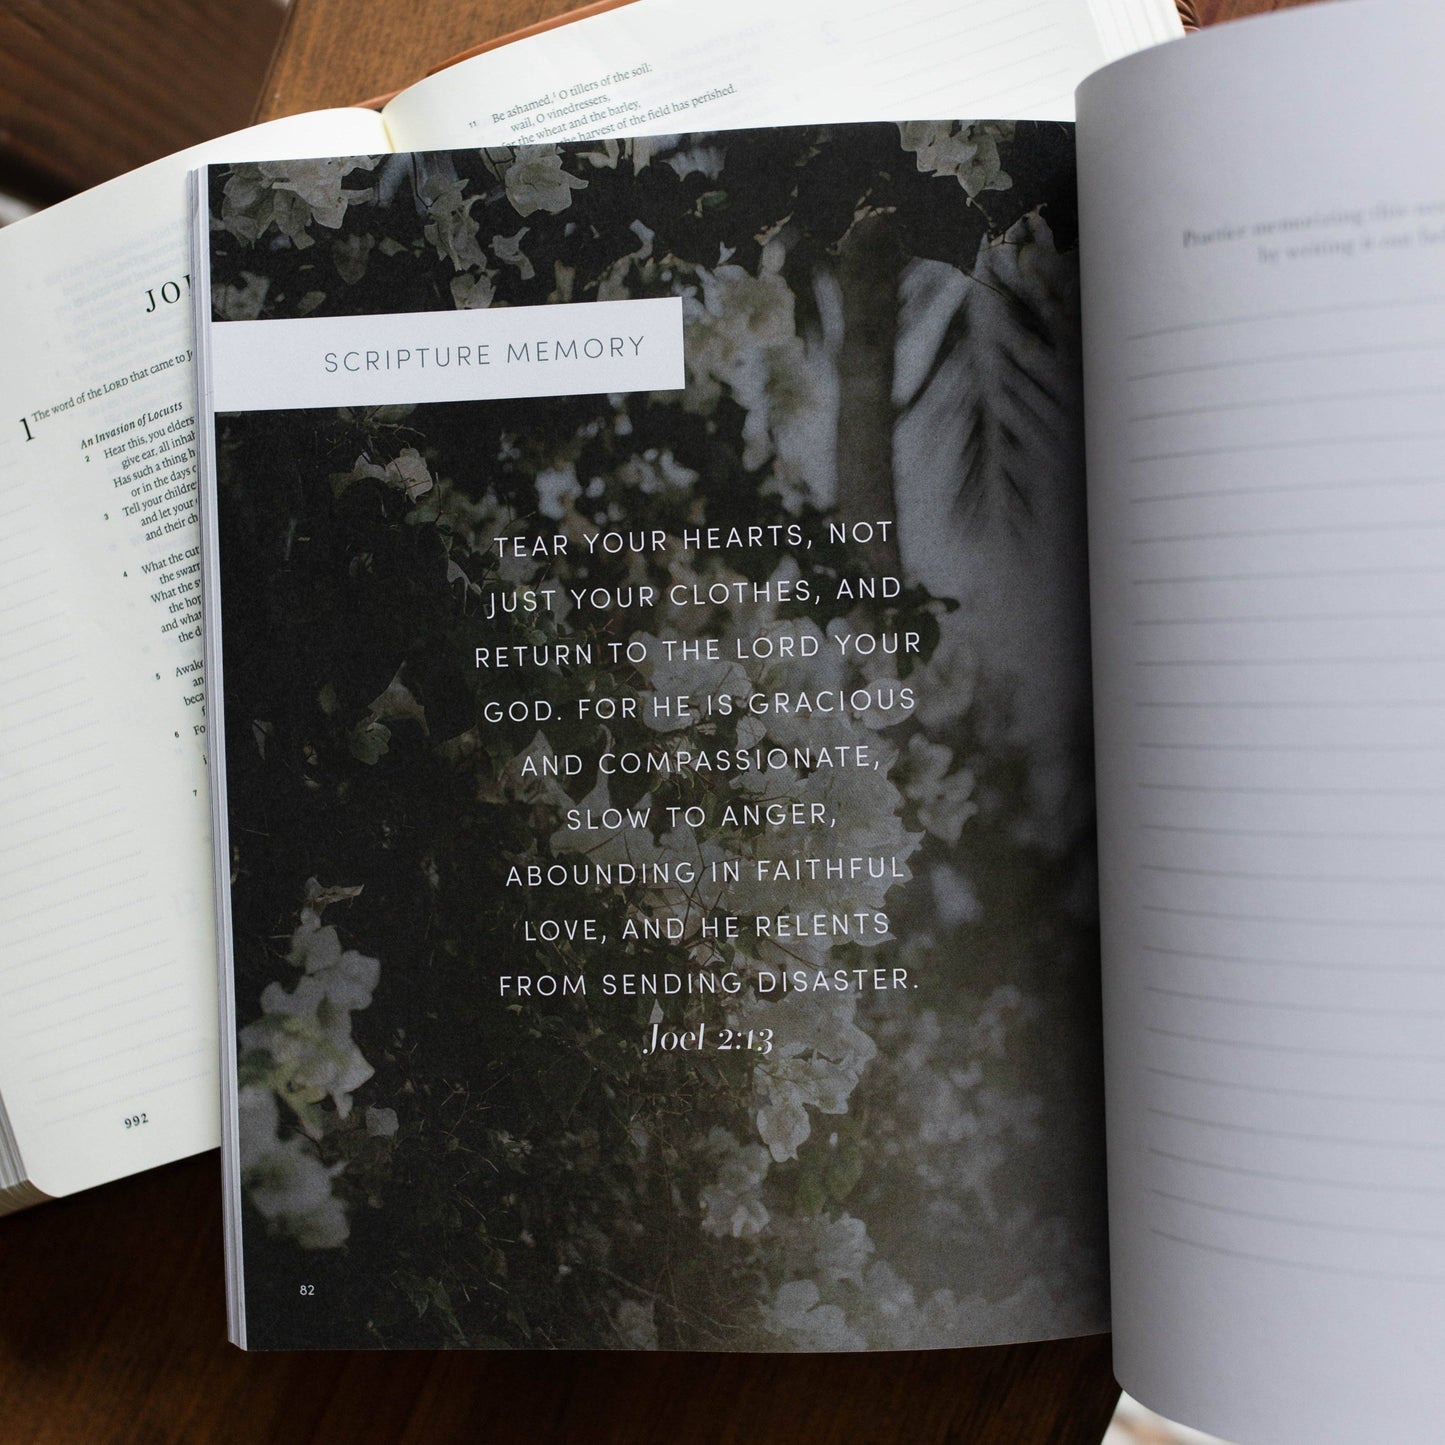 11 Be ashamed, O tillers of the soil:
wail, O vinedressers,
for the wheat and the barley,
the harvest of the field has perished.
JO
1 The word of the LORD that came to
An Invasion of Locusts
2 Hear this, you elders
give ear, all
Has such a thing
or in the days
3 Tell your
and let your
and their
4 What the
the
What the
the
and
the
5
6
7
992
SCRIPTURE MEMORY
TEAR YOUR HEARTS, NOT
JUST YOUR CLOTHES, AND
RETURN TO THE LORD YOUR
GOD. FOR HE IS GRACIOUS
AND COMPASSIONATE,
SLOW TO ANGER,
ABOUNDING IN FAITHFUL
LOVE, AND HE RELENTS
FROM SENDING DISASTER.
Joel 2:13
82
Practice memorizing this
by writing it out